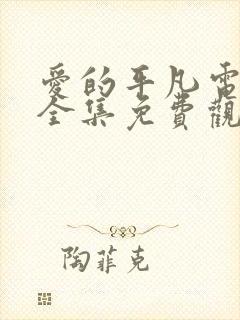 愛的平凡電
全集免費觀
陶菲克